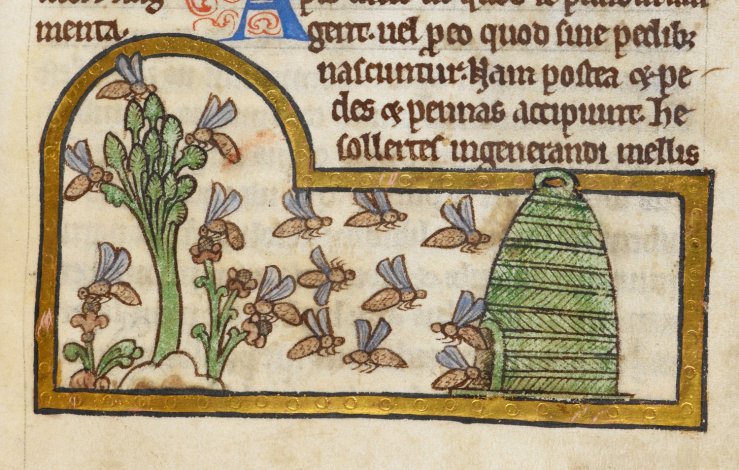 menta. A gent. uel ꝓeo quod sine pedibꝫ
nascuntur. Nam postea & pe
des & pennas accipiunt. he
sollertes ingenerandi mellis